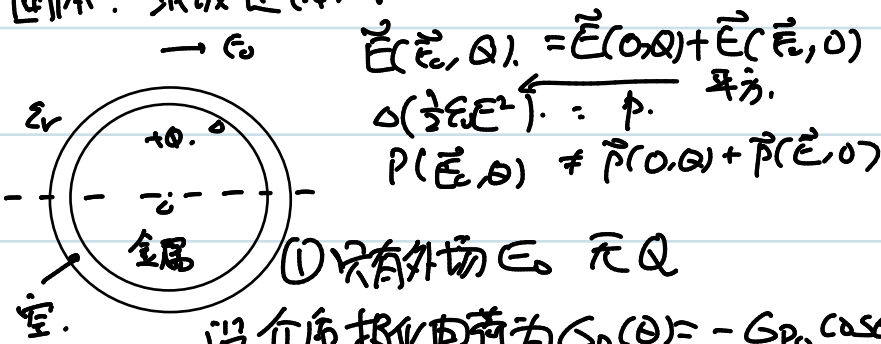 → E₀
Ẽ(Ẽ₀, Q). = Ẽ(0,Q) + Ẽ(Ẽ₀, 0)
平方.
Δ(½ε₀E²). = p.
P(Ẽ₀,Q) ≠ P̃(0,Q) + P̃(Ẽ,0)
εr
+Q.
金属
空.
①只有外场 E₀ 无Q
设介质极化电荷为σp(θ) = -σp₀ cosθ